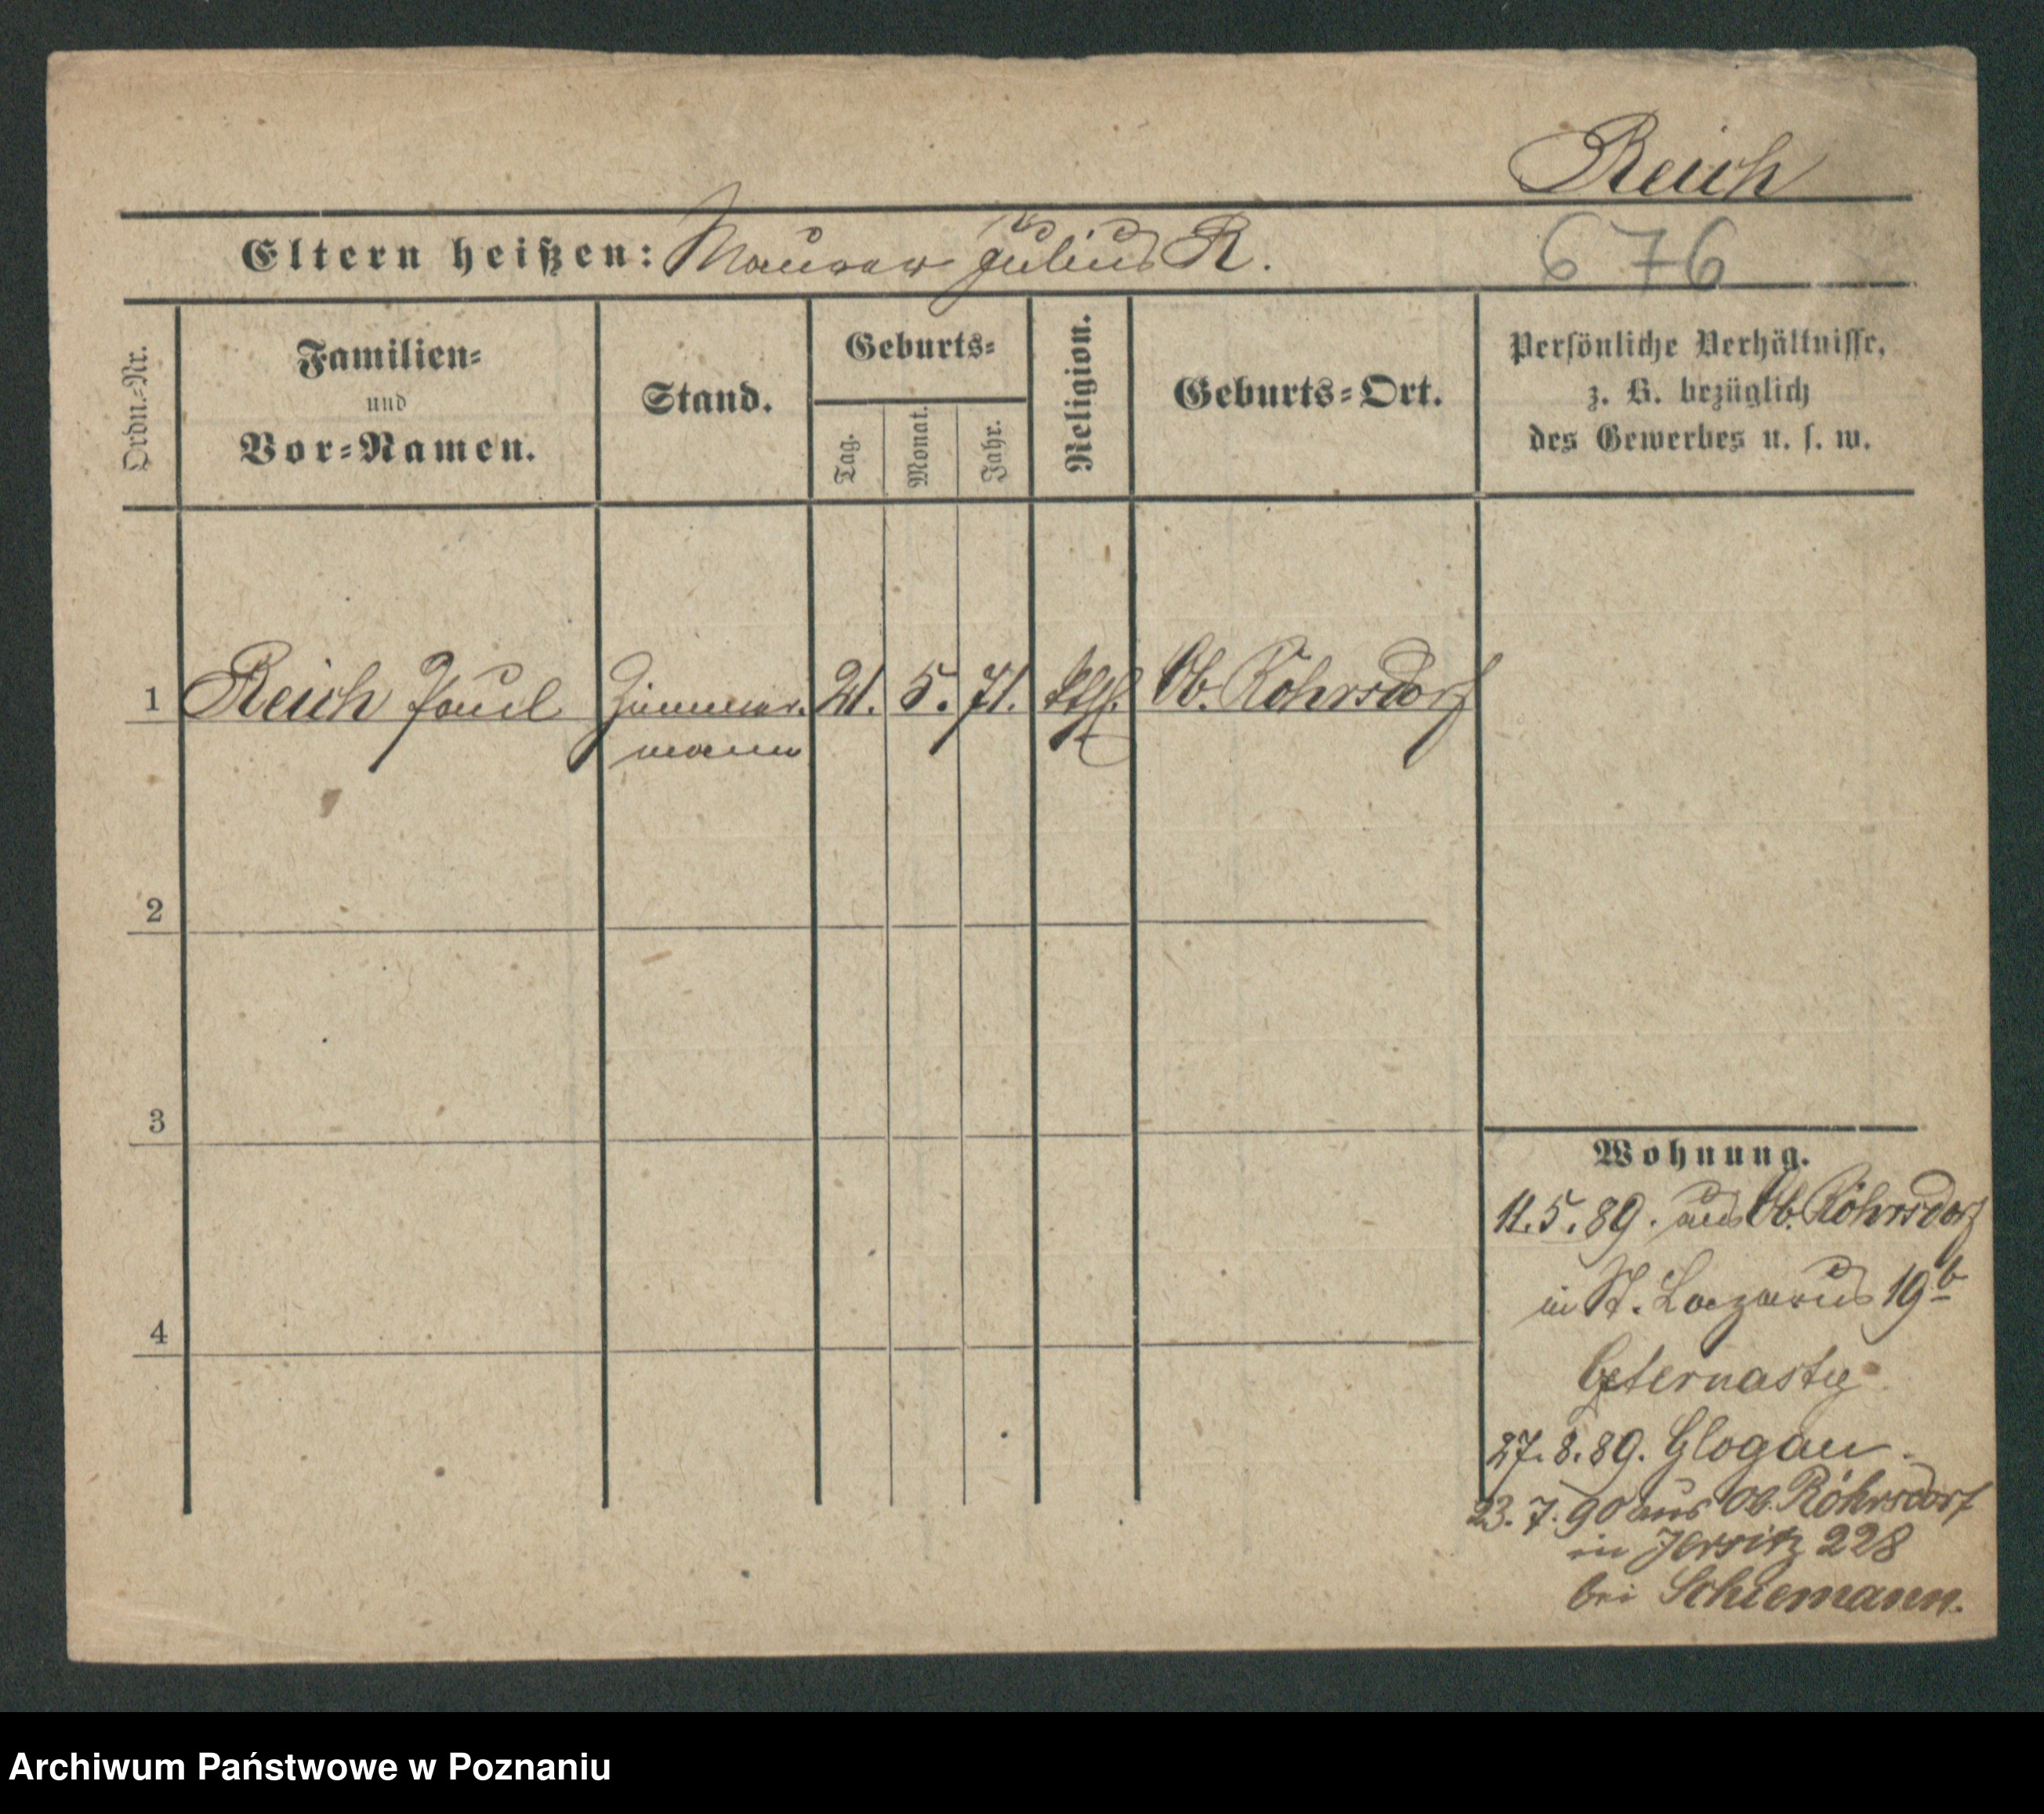 Reich
Eltern heißen: Maurer Julius R.
676
Ordn.-Nr.
Familien-
und
Vor-Namen.
Stand.
Geburts-
Tag.
Monat.
Jahr.
Religion.
Geburts-Ort.
Persönliche Verhältnisse,
z. B. bezüglich
des Gewerbes u. s. w.
1 Reich Paul Zimmer- 21. 5. 71. kth. Ob. Röhrsdorf
mann
2
3
4
Wohnung.
11.5.89. aus Ob. Röhrsdorf
in St. Lazarus 19b
27.8.89. Glogau.
23.7.90 aus Ob. Röhrsdorf
in Jersitz 228
bei Schiemann.
Archiwum Państwowe w Poznaniu